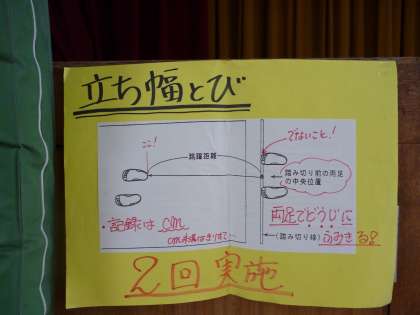 立ち幅とび
でないこと!
ここ!
跳躍距離
踏み切り前の両足
の中央位置
・記録は cm
cm未満はきりすて
両足でどうじに
(踏み切り線)
ふみきる
2回実施